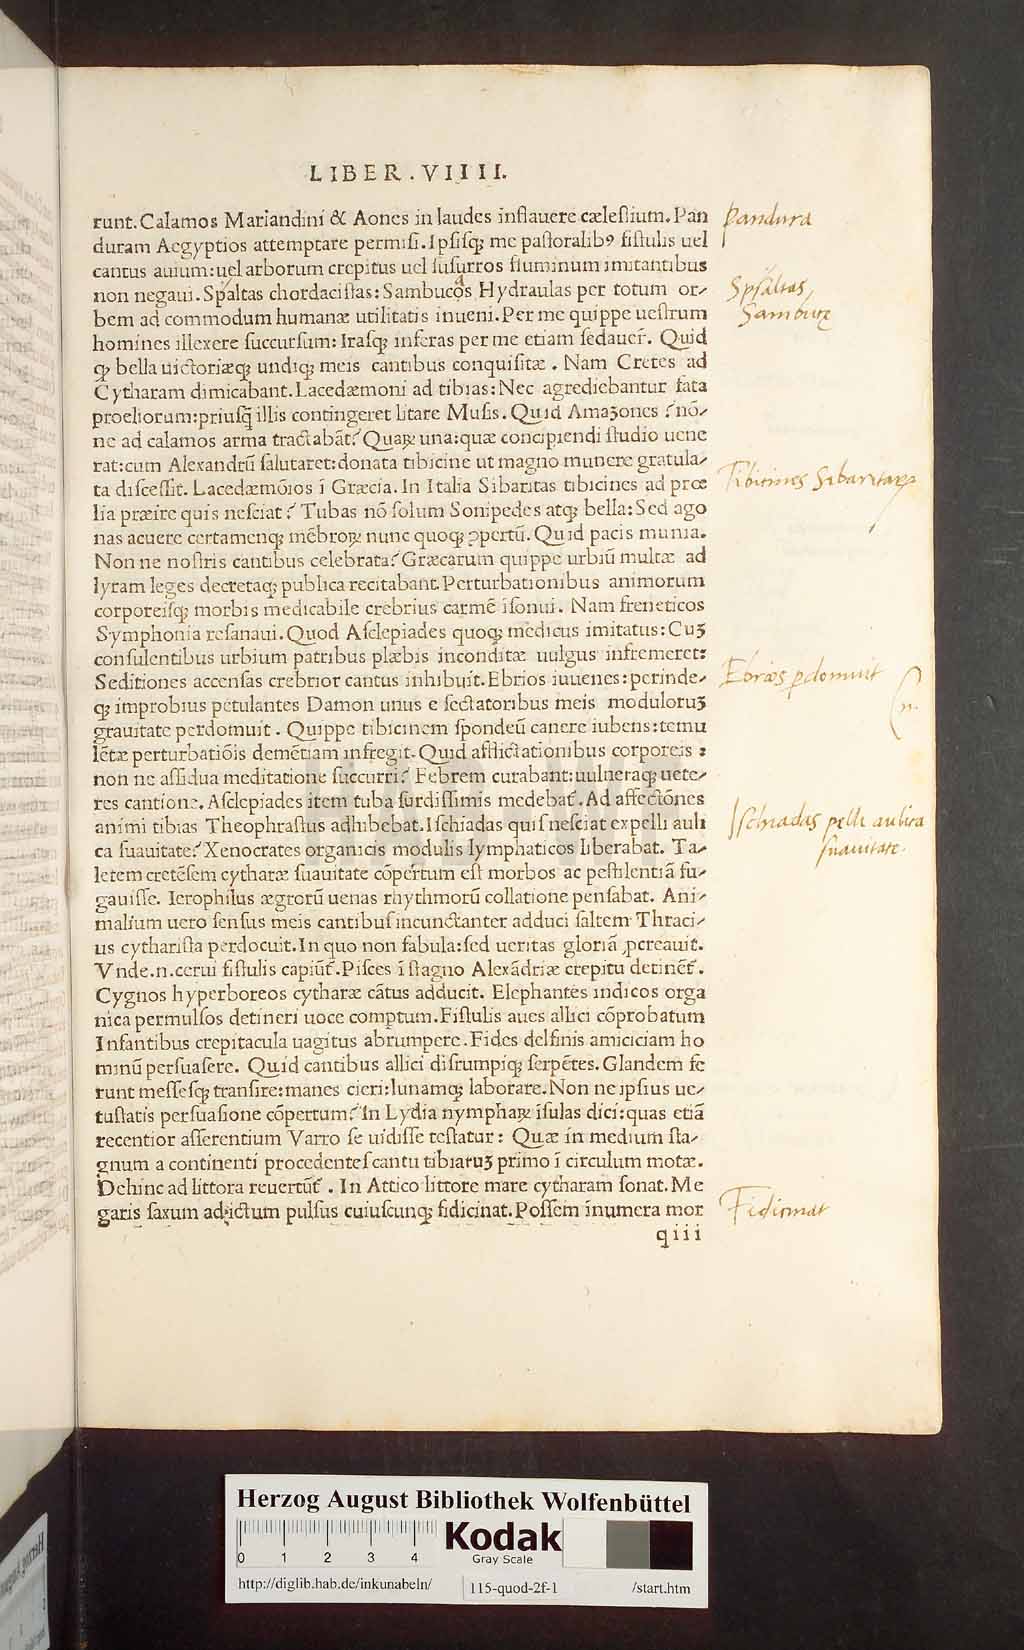 LIBER . VIIII.
runt. Calamos Mariandini & Aones in laudes inflauere cælestium. Pan
duram Aegyptios attemptare permisi. Ipsisqꝫ me pastoralibꝯ fistulis uel
cantus auium: uel arborum crepitus uel susurros fluminum imitantibus
non negaui. Spaltas chordacistas: Sambucos Hydraulas per totum or-
bem ad commodum humanæ utilitatis inueni. Per me quippe uestrum
homines illexere succursum: Irasqꝫ inferas per me etiam sedauer̃. Quid
qꝫ bella uictoriæqꝫ undiqꝫ meis cantibus conquisitæ . Nam Cretes ad
Cytharam dimicabant. Lacedæmoni ad tibias: Nec agrediebantur fata
proeliorum: priusq̃ illis contingeret litare Musis. Quid Amaʒones ? nō-
ne ad calamos arma tractabãt? Quaꝝ una: quæ concipiendi studio uene
rat: cum Alexandrũ salutaret: donata tibicine ut magno munere gratula-
ta discessit. Lacedæmõios ĩ Græcia. In Italia Sibaritas tibicines ad prœ
lia præire quis nesciat? Tubas nõ solum Sonipedes atqꝫ bella: Sed ago
nas acuere certamenqꝫ mẽbroꝝ nunc quoqꝫ ↄpertũ. Quid pacis munia.
Non ne nostris cantibus celebrata? Græcarum quippe urbiũ multæ ad
lyram leges decretaqꝫ publica recitabant. Perturbationibus animorum
corporeisqꝫ morbis medicabile crebrius carmẽ isonui. Nam freneticos
Symphonia resanaui. Quod Asclepiades quoqꝫ medicus imitatus: Cuʒ
consulentibus urbium patribus plæbis inconditæ uulgus infremeret:
Seditiones accensas crebrior cantus inhibuit. Ebrios iuuenes: perinde-
qꝫ improbius petulantes Damon unus e sectatoribus meis moduloruʒ
grauitate perdomuit . Quippe tibicinem spondeũ canere iubens: temu
lẽtæ perturbatiõis demẽtiam infregit. Quid afflictationibus corporeis :
non ne assidua meditatione succurri? Febrem curabant: uulneraqꝫ uete-
res cantione. Asclepiades item tuba surdissimis medebat̃. Ad affectõnes
animi tibias Theophrastus adhibebat. Ischiadas quis nesciat expelli auli
ca suauitate? Xenocrates organicis modulis lymphaticos liberabat. Ta-
letem cretẽsem cytharæ suauitate cõpertum est morbos ac pestilentiã fu-
gauisse. Ierophilus ægrorũ uenas rhythmorũ collatione pensabat. Ani-
malium uero sensus meis cantibus incunctanter adduci saltem Thraci-
us cytharista perdocuit. In quo non fabula: sed ueritas gloriã ꝓcreauit.
Vnde. n. cerui fistulis capiũt̃. Pisces ĩ stagno Alexãdriæ crepitu detinẽt̃.
Cygnos hyperboreos cytharæ cãtus adducit. Elephantes indicos orga
nica permulsos detineri uoce comptum. Fistulis aues allici cõprobatum
Infantibus crepitacula uagitus abrumpere. Fides delfinis amiciciam ho
minũ persuasere. Quid cantibus allici disrumpiqꝫ serpẽtes. Glandem fe
runt messesqꝫ transire: manes cieri: lunamqꝫ laborare. Non ne ipsius ue-
tustatis persuasione cõpertum? In Lydia nymphaꝝ isulas dici: quas etiã
recentior asserentium Varro se uidisse testatur : Quæ in medium sta-
gnum a continenti procedentes cantu tibiaruʒ primo ĩ circulum motæ.
Dehinc ad littora reuertũt̃ . In Attico littore mare cytharam sonat. Me
garis saxum ad ictum pulsus cuiuscunqꝫ fidicinat. Possem inumera mor
qiii
Pandura
Spsaltas,
Sambucę
Tibicines Sibaritaꝝ
Ebrios ꝑdomuit
.n.
Ischiadas pelli aulica
suauitate.
Fidicinat
HAB WF
Herzog August Bibliothek Wolfenbüttel
0 1 2 3 4
Kodak
Gray Scale
http://diglib.hab.de/inkunabeln/ 115-quod-2f-1 /start.htm